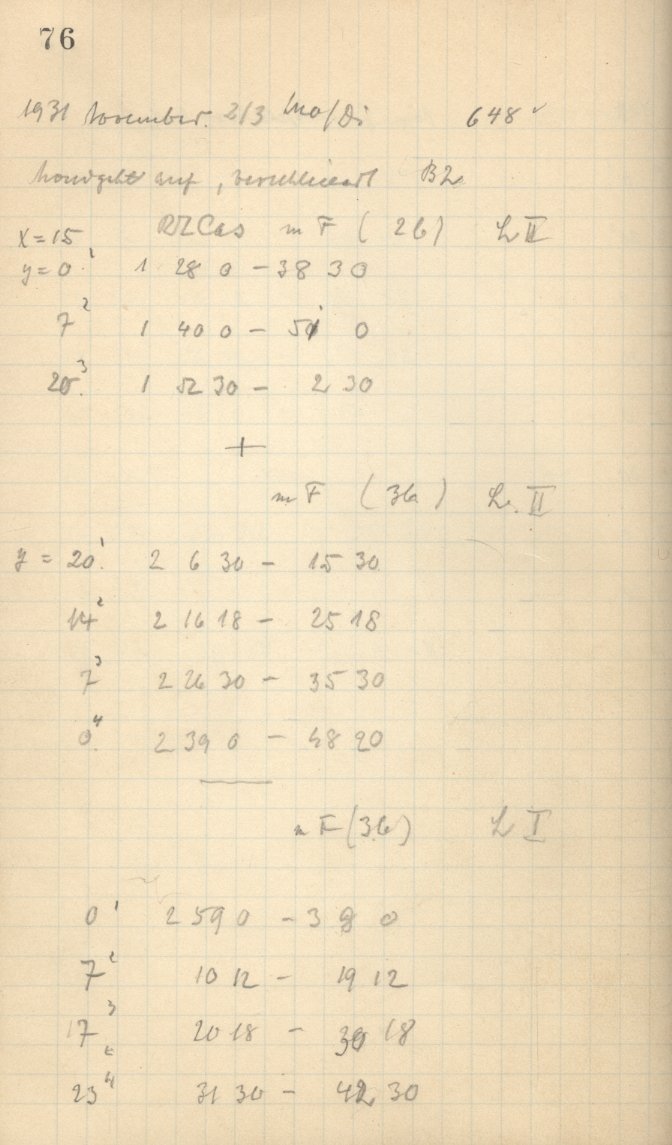 76
1931 November. 2/3 Mo/Di 648
Mond geht auf, verschleiert B2
x=15 RZ Cas m F (2b) L II
y=0 1 1 28 0 - 38 30
7 2 1 40 0 - 51 0
20. 3 1 52 30 - 2 30
+
m F (3a) L. II
y = 20. 1 2 6 30 - 15 30
14 2 2 16 18 - 25 18
7 3 2 26 30 - 35 30
0. 4 2 39 0 - 48 20
m F (3b) L I
0 1 2 59 0 - 3 8 0
7 2 10 12 - 19 12
17 3 20 18 - 30 18
23 4 31 30 - 42 30